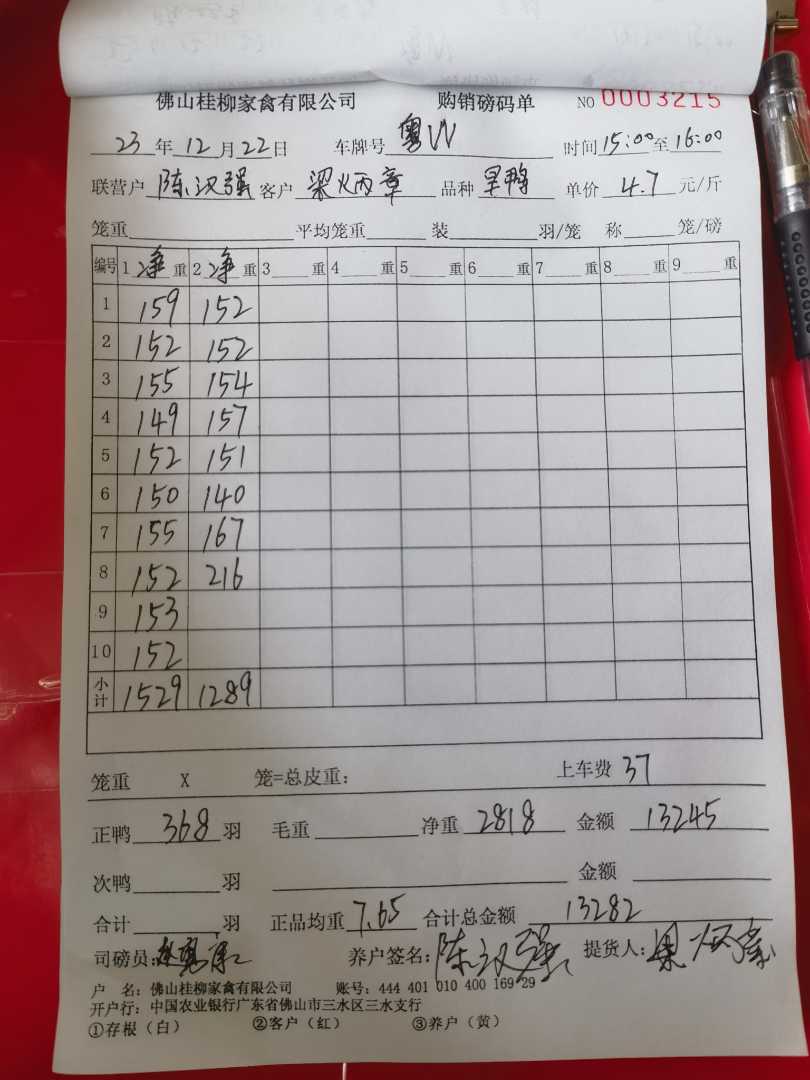 佛山桂柳家禽有限公司 购销磅码单 NO 0003215
23年12月22日 车牌号 粤W 时间15:00至16:00
联营户 陈汉强 客户 梁炳章 品种 旱鸭 单价 4.7 元/斤
笼重 平均笼重 装 羽/笼 称 笼/磅
编号 1 净 重 2 净 重 3 重 4 重 5 重 6 重 7 重 8 重 9 重
1 159 152
2 152 152
3 155 154
4 149 157
5 152 151
6 150 140
7 155 167
8 152 216
9 153
10 152
小计 1529 1289
笼重 X 笼=总皮重: 上车费 37
正鸭 368 羽 毛重 净重 2818 金额 13245
次鸭 羽 金额
合计 羽 正品均重 7.65 合计总金额 13282
司磅员: 养户签名: 陈汉强 提货人: 梁炳章
户 名: 佛山桂柳家禽有限公司 账号: 444 401 010 400 169 29
开户行: 中国农业银行广东省佛山市三水区三水支行
①存根(白) ②客户(红) ③养户(黄)